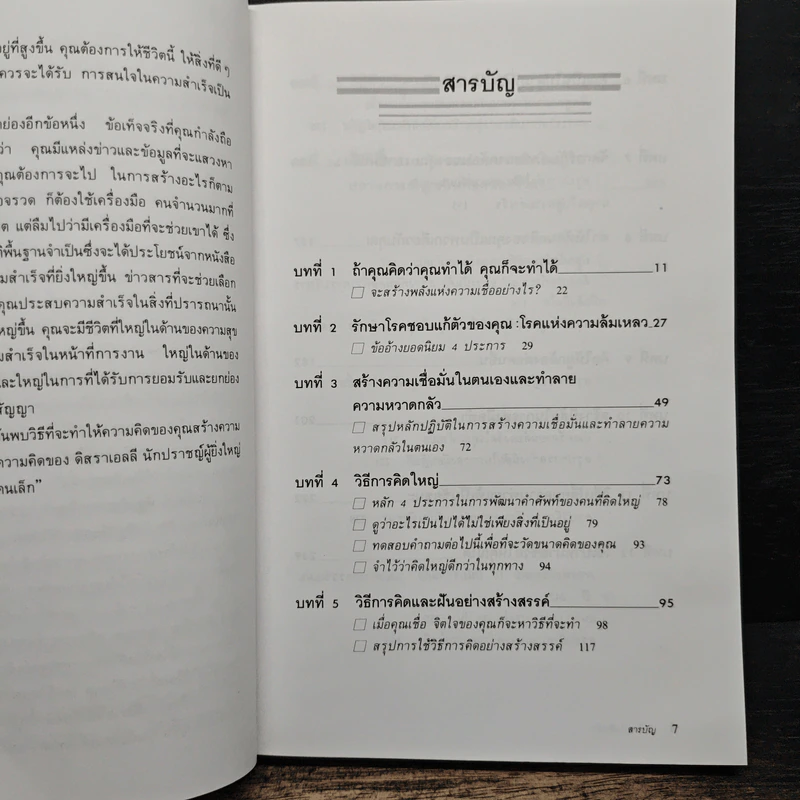 อยู่ที่สูงขึ้น คุณต้องการให้ชีวิตนี้ ให้สิ่งที่ดีๆ
ควรจะได้รับ การสนใจในความสำเร็จเป็น
ย่องอีกข้อหนึ่ง ข้อเท็จจริงที่คุณกำลังถือ
ว่า คุณมีแหล่งข่าวและข้อมูลที่จะแสวงหา
คุณต้องการจะไป ในการสร้างอะไรก็ตาม
จรวด ก็ต้องใช้เครื่องมือ คนจำนวนมากที่
ต แต่ลืมไปว่ามีเครื่องมือที่จะช่วยเขาได้ ซึ่ง
พื้นฐานจำเป็นซึ่งจะได้ประโยชน์จากหนังสือ
มสำเร็จที่ยิ่งใหญ่ขึ้น ข่าวสารที่จะช่วยเลือก
คุณประสบความสำเร็จในสิ่งที่ปรารถนานั้น
ใหญ่ขึ้น คุณจะมีชีวิตที่ใหญ่ในด้านของความสุข
มสำเร็จในหน้าที่การงาน ใหญ่ในด้านของ
และใหญ่ในการที่ได้รับการยอมรับและยกย่อง
สัญญา
นพบวิธีที่จะทำให้ความคิดของคุณสร้างความ
ความคิดของ ดิสราเอลลี นักปราชญ์ผู้ยิ่งใหญ่
คนเล็ก”
สารบัญ
บทที่ 1 ถ้าคุณคิดว่าคุณทำได้ คุณก็จะทำได้ 11
จะสร้างพลังแห่งความเชื่ออย่างไร? 22
บทที่ 2 รักษาโรคชอบแก้ตัวของคุณ : โรคแห่งความล้มเหลว 27
ข้ออ้างยอดนิยม 4 ประการ 29
บทที่ 3 สร้างความเชื่อมั่นในตนเองและทำลาย
ความหวาดกลัว 49
สรุปหลักปฏิบัติในการสร้างความเชื่อมั่นและทำลายความ
หวาดกลัวในตนเอง 72
บทที่ 4 วิธีการคิดใหญ่ 73
หลัก 4 ประการในการพัฒนาคำศัพท์ของคนที่คิดใหญ่ 78
ดูว่าอะไรเป็นไปได้ไม่ใช่เพียงสิ่งที่เป็นอยู่ 79
ทดสอบคำถามต่อไปนี้เพื่อที่จะวัดขนาดคิดของคุณ 93
จำไว้ว่าคิดใหญ่ดีกว่าในทุกทาง 94
บทที่ 5 วิธีการคิดและฝันอย่างสร้างสรรค์ 95
เมื่อคุณเชื่อ จิตใจของคุณก็จะหาวิธีที่จะทำ 98
สรุปการใช้วิธีการคิดอย่างสร้างสรรค์ 117
สารบัญ 7